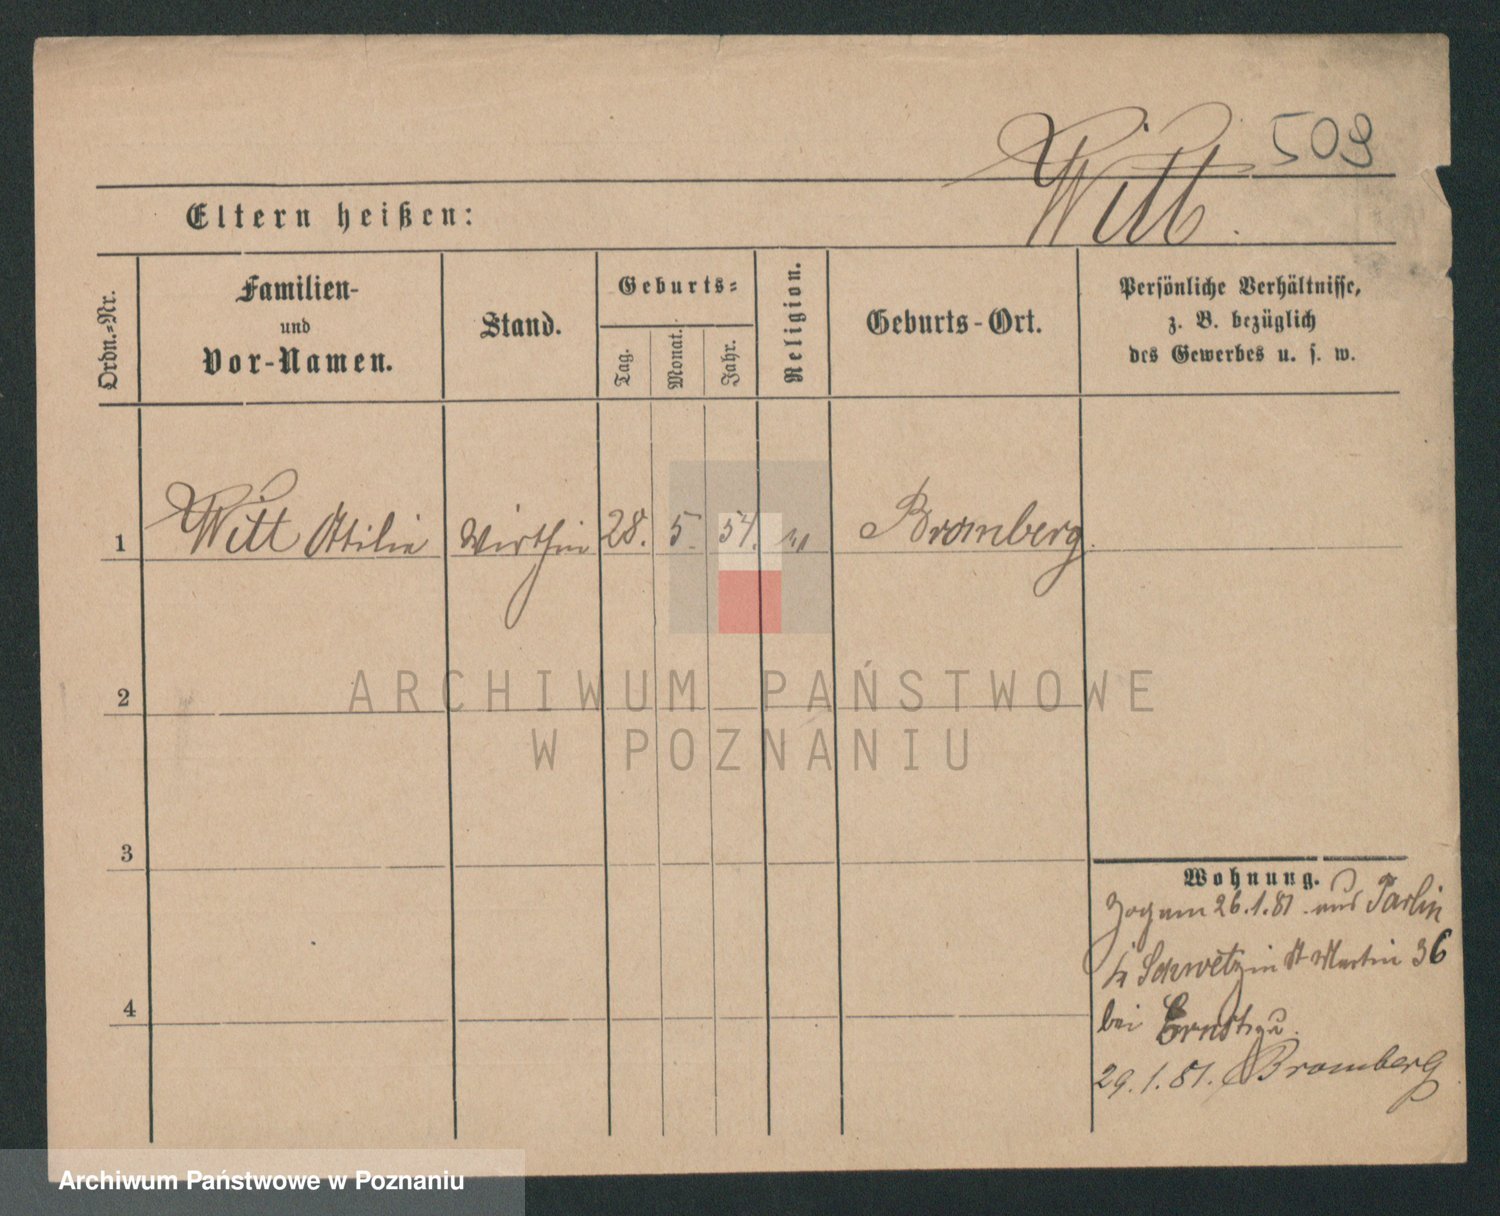 Witt. 509
Eltern heißen:
Ordn.-Nr.
Familien-
und
Vor-Namen.
Stand.
Geburts-
Tag.
Monat.
Jahr.
Religion.
Geburts-Ort.
Persönliche Verhältnisse,
z. B. bezüglich
des Gewerbes u. s. w.
1 Witt Ottilie Wirthin 28. 5. 54. Bromberg.
2
ARCHIWUM PAŃSTWOWE
W POZNANIU
3
Wohnung.
Zog am 26.1.81. aus Parlin
Schwetz in St Martin 36
4
bei
29.1.81. Bromberg
Archiwum Państwowe w Poznaniu